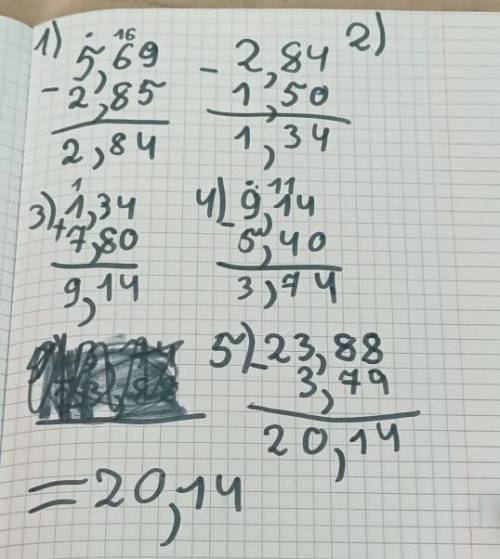 1) 16
5,69
- 2,85
2,84
2)
- 2,84
1,50
1,34
3) 1
+ 1,34
7,80
9,14
4) 11
- 9,14
5,40
3,74
5) - 23,88
3,79
20,14
= 20,14